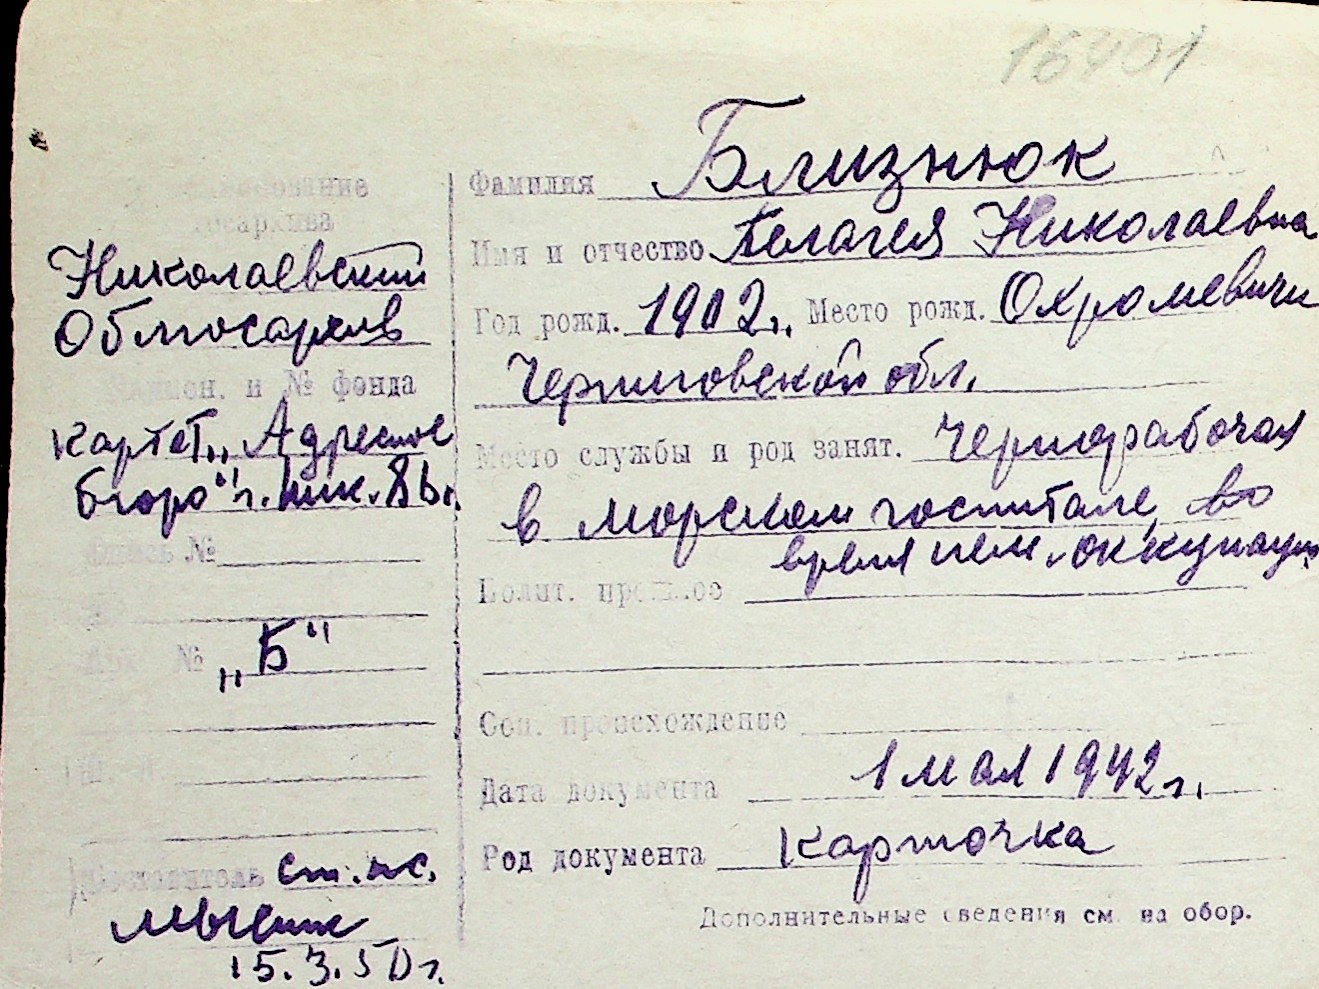 16401
Наименование
госархива
Николаевский
Облгосархив
и № фонда
Картот. „Адресное
бюро" г. Ник. 8 б.
опись №
№ „Б"
Составитель ст. н.с.
15.3.50 г.
Фамилия Близнюк
Имя и отчество Пелагея Николаевна
Год рожд. 1902 г. Место рожд. Охромевичи
Черниговской обл.
Место службы и род занят. Чернорабочая
в морском госпитале, во
время нем. оккупации
Полит. прошлое
Соц. происхождение
Дата документа 1 мая 1942 г.
Род документа Карточка
Дополнительные сведения см. на обор.